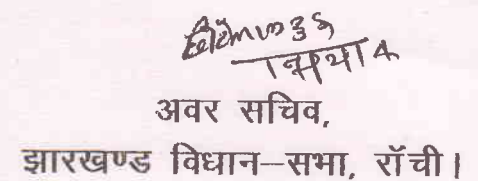 अवर सचिव,
झारखण्ड विधान–सभा, राँची।